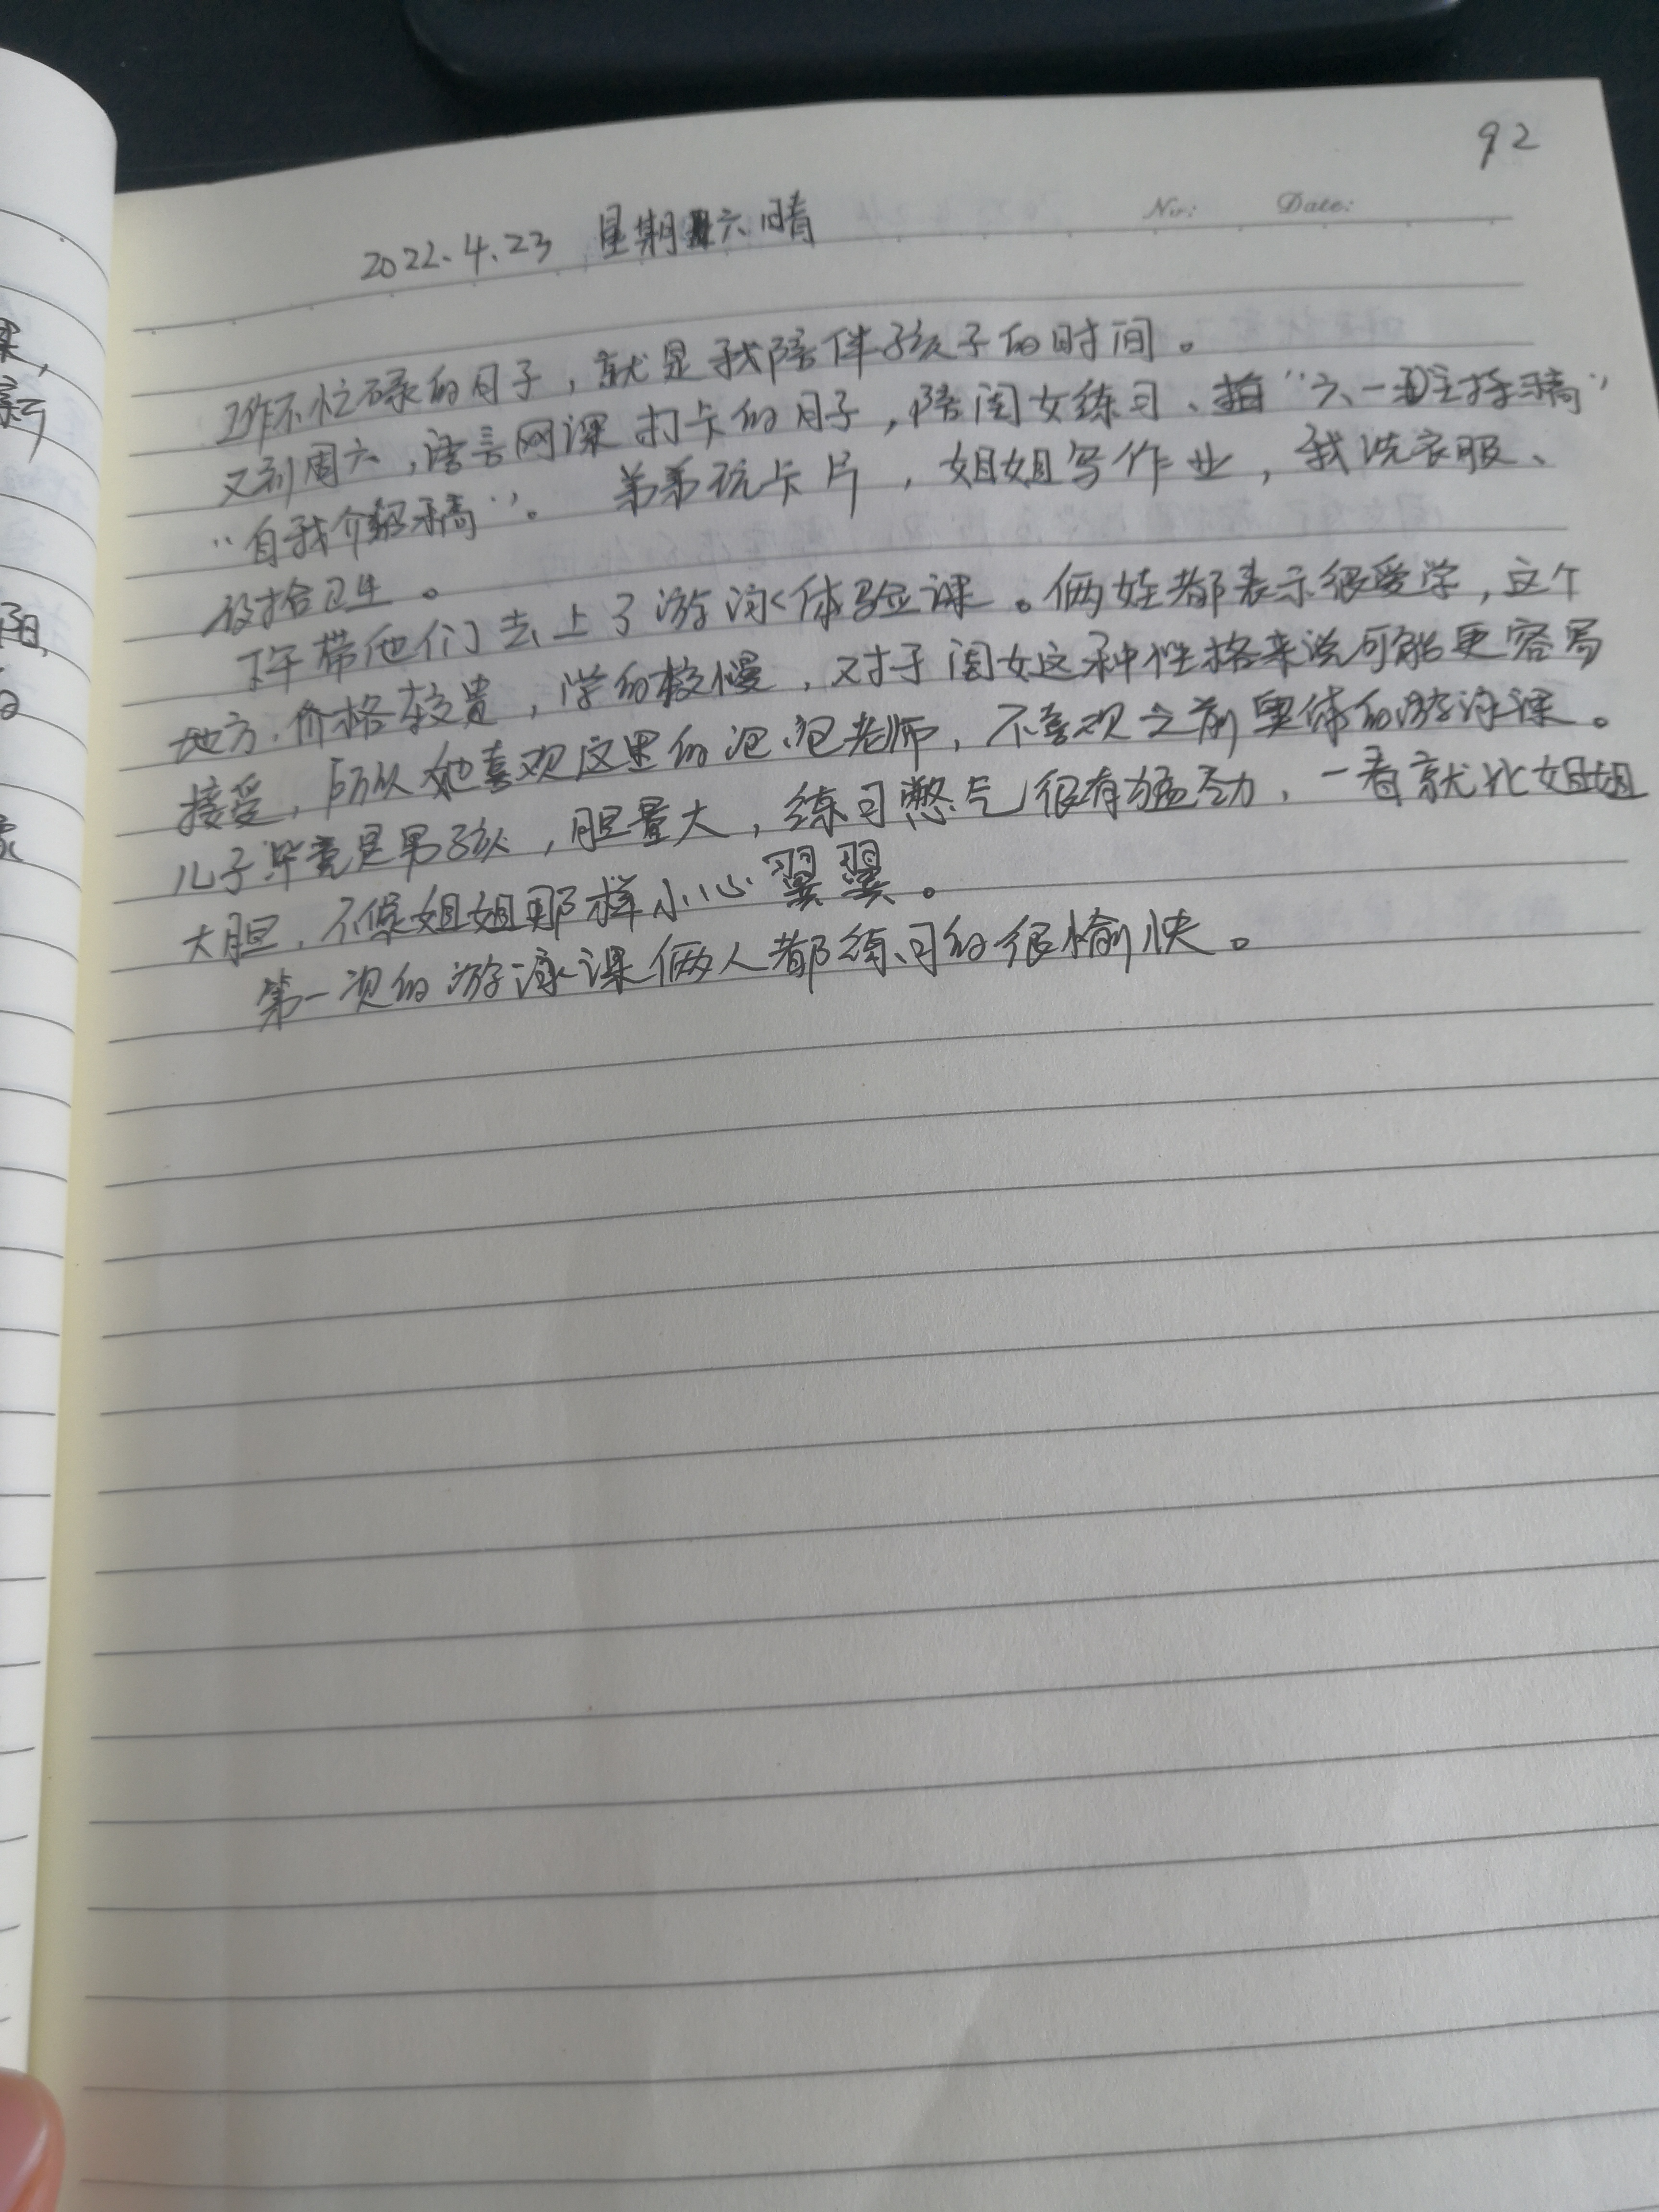 92
No: Date:
2022.4.23 星期六 晴
工作不忙碌的日子，就是我陪伴孩子的时间。
又到周六，语言网课打卡的日子，陪闺女练习、拍“六一主持稿”
“自我介绍稿”。 弟弟玩卡片，姐姐写作业，我洗衣服、
收拾卫生。
下午带他们去上了游泳体验课。俩娃都表示很爱学，这个
地方，价格较贵，学的较慢，对于闺女这种性格来说可能更容易
接受，所以她喜欢这里的泡泡老师，不喜欢之前奥体的游泳课。
儿子毕竟是男孩，胆量大，练习憋气很有猛劲，一看就比姐姐
大胆，不像姐姐那样小心翼翼。
第一次的游泳课俩人都练习的很愉快。